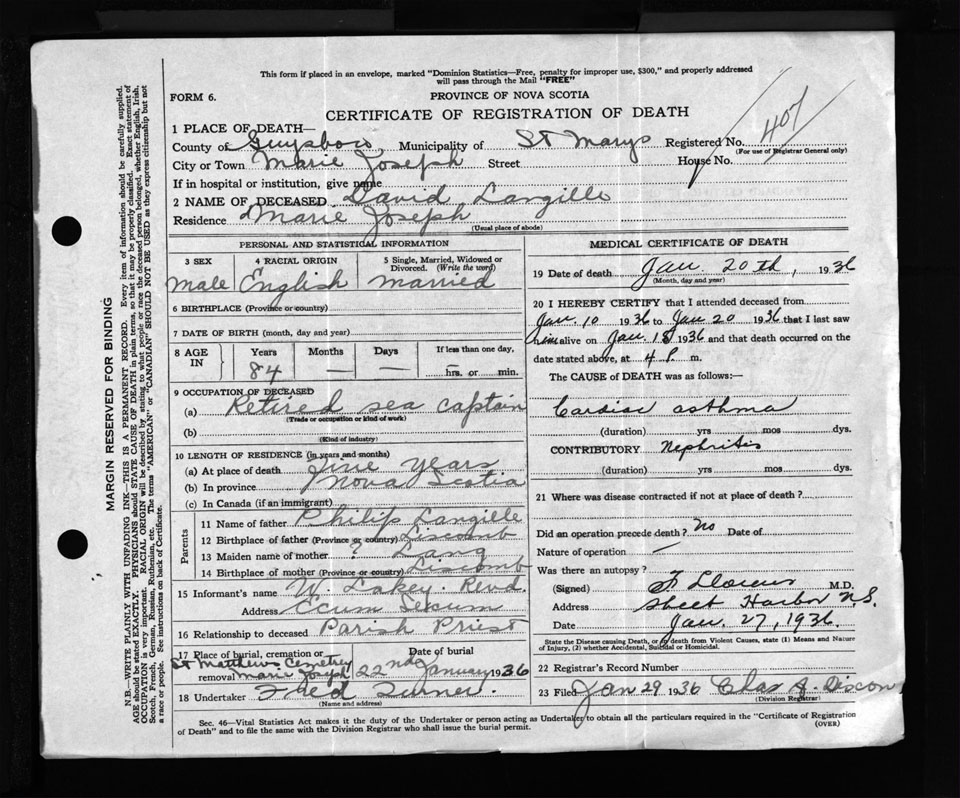 This form if placed in an envelope, marked "Dominion Statistics—Free, penalty for improper use, $300," and properly addressed
will pass through the Mail "FREE"
FORM 6.
PROVINCE OF NOVA SCOTIA
CERTIFICATE OF REGISTRATION OF DEATH
407
1 PLACE OF DEATH—
County of Guysboro Municipality of St Marys Registered No.
(For use of Registrar General only)
City or Town Marie Joseph Street House No.
If in hospital or institution, give name
2 NAME OF DECEASED David Langille
Residence Marie Joseph
(Usual place of abode)
PERSONAL AND STATISTICAL INFORMATION
3 SEX
4 RACIAL ORIGIN
5 Single, Married, Widowed or Divorced. (Write the word)
Male English Married
6 BIRTHPLACE (Province or country)
7 DATE OF BIRTH (month, day and year)
8 AGE IN
Years Months Days If less than one day,
84 — — — hrs. or min.
9 OCCUPATION OF DECEASED
(a) Retired sea captain
(Trade or occupation or kind of work)
(b)
(Kind of industry)
10 LENGTH OF RESIDENCE (in years and months)
(a) At place of death years
(b) In province Nova Scotia
(c) In Canada (if an immigrant)
Parents
11 Name of father Philip Langille
12 Birthplace of father (Province or country) Liscomb
13 Maiden name of mother ? Lang
14 Birthplace of mother (Province or country) Liscomb
15 Informant's name W. Lakey Revd.
Address Ecum Secum
16 Relationship to deceased Parish Priest
17 Place of burial, cremation or removal Date of burial
St Matthews Cemetery Marie Joseph 22nd January 1936
18 Undertaker Fred Turner.
(Name and address)
MEDICAL CERTIFICATE OF DEATH
19 Date of death Jan. 20th, 1936
(Month, day and year)
20 I HEREBY CERTIFY that I attended deceased from
Jan 10 1936 to Jan 20 1936 that I last saw
him alive on Jan 18 1936 and that death occurred on the
date stated above, at 4 P. m.
The CAUSE of DEATH was as follows:—
Cardiac asthma
(duration) yrs mos dys.
CONTRIBUTORY Nephritis
(duration) yrs mos dys.
21 Where was disease contracted if not at place of death?
Did an operation precede death? No Date of
Nature of operation —
Was there an autopsy?
(Signed) M.D.
Address Sheet Harbor N.S.
Date Jan. 27, 1936.
State the Disease causing Death, or in death from Violent Causes, state (1) Means and Nature
of Injury, (2) whether Accidental, Suicidal or Homicidal.
22 Registrar's Record Number
23 Filed Jan 29 1936 Chas A. Dixon
(Division Registrar)
Sec. 46—Vital Statistics Act makes it the duty of the Undertaker or person acting as Undertaker to obtain all the particulars required in the "Certificate of Registration
of Death" and to file the same with the Division Registrar who shall issue the burial permit.
(OVER)
MARGIN RESERVED FOR BINDING
N.B.—WRITE PLAINLY WITH UNFADING INK—THIS IS A PERMANENT RECORD. Every item of information should be carefully supplied.
AGE should be stated EXACTLY. PHYSICIANS should STATE CAUSE OF DEATH in plain terms, so that it may be properly classified. Exact statement of
OCCUPATION is very important. RACIAL ORIGIN will be described by stating to what people or race the deceased person belonged, whether English, Irish,
Scotch, French, German, Russian, Ruthenian, etc. The terms "AMERICAN" or "CANADIAN" SHOULD NOT BE USED as they express citizenship but not
a race or people. See instructions on back of Certificate.